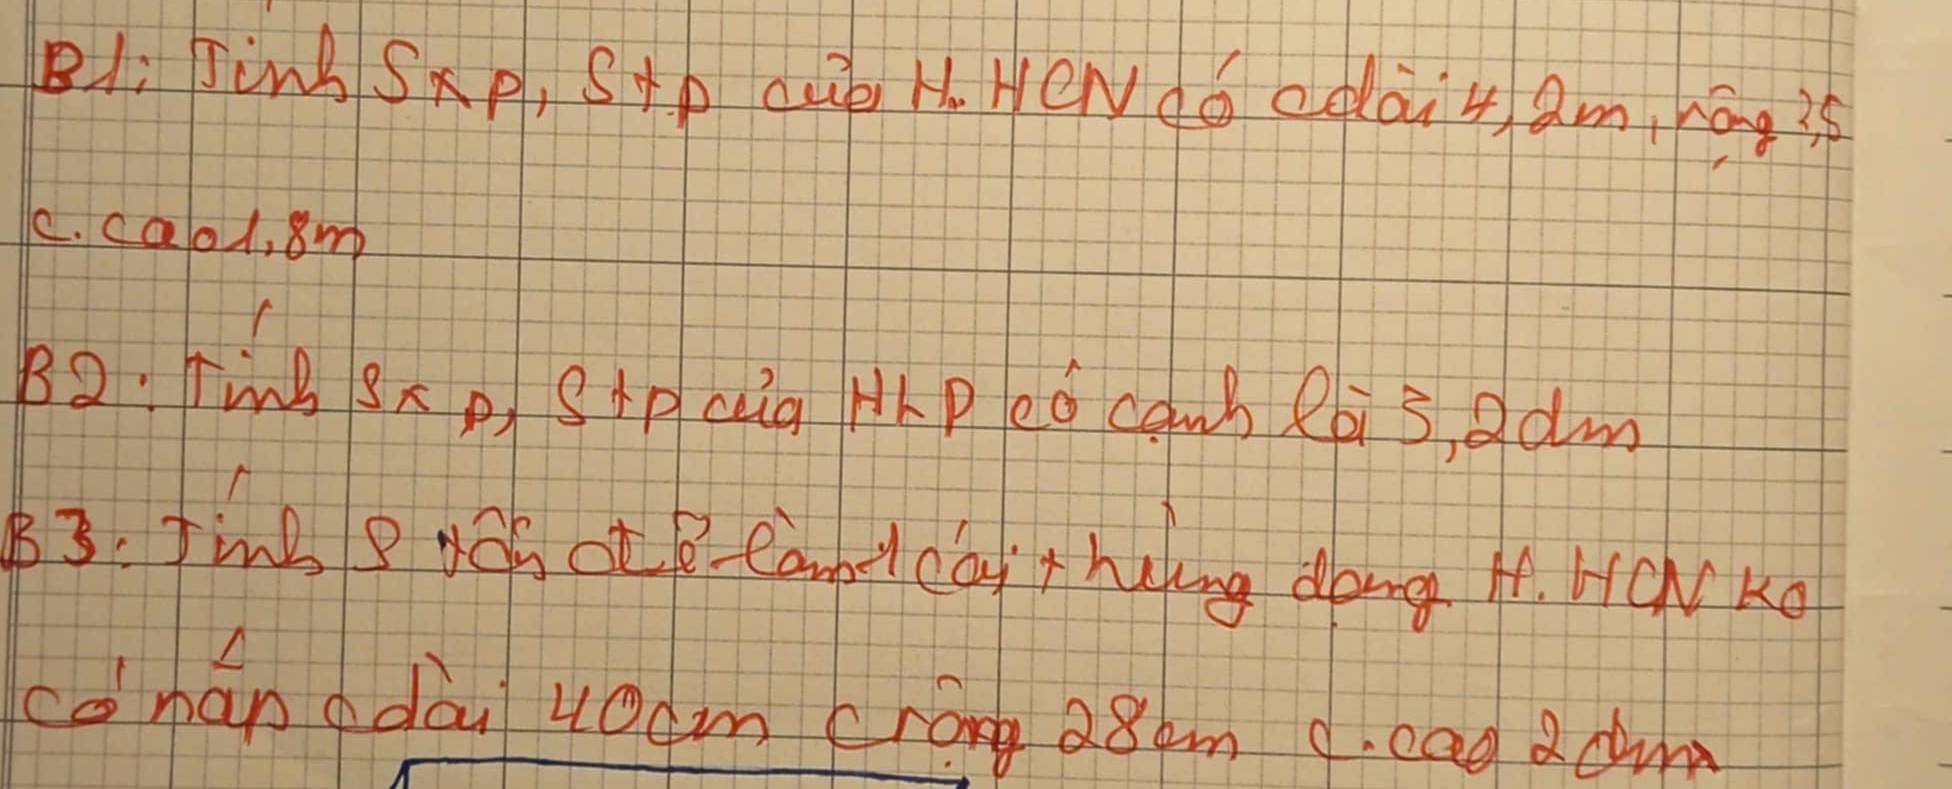 B1: Tính Sxp, Stp của H.HCN có cdài 4,2m, rộng 3,5
c.cao 1,8m
B2: Tính Sxp, Stp của HLP có cạnh là 5,2dm
B3: Tính S tôn để làm 1 cái thùng dạng H.HCN ko
có nắp cdài 40cm c rộng 28cm c.cao 2dm